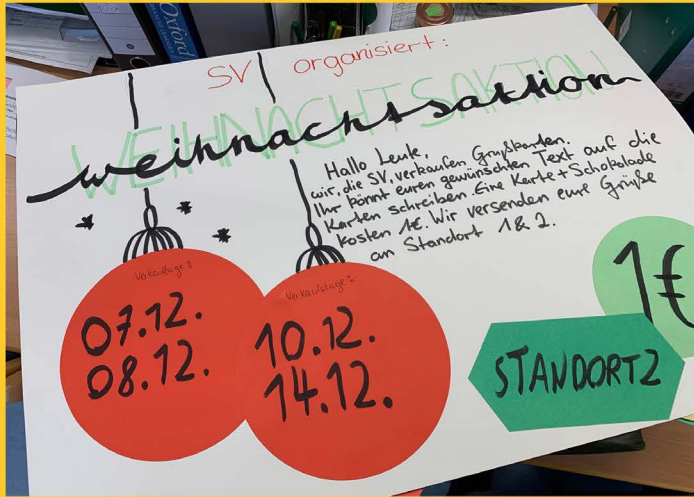 Oxford
SV organisiert:
WEIHNACHTSAKTION
weihnachtsaktion
Hallo Leute,
wir, die SV, verkaufen Grußkarten.
Ihr könnt euren gewünschten Text auf die
Karten schreiben. Eine Karte + Schokolade
kosten 1€. Wir versenden eure Grüße
an Standort 1 & 2.
Verkaufstage:
07.12.
08.12.
Verkaufstage:
10.12.
14.12.
1€
STANDORT 2